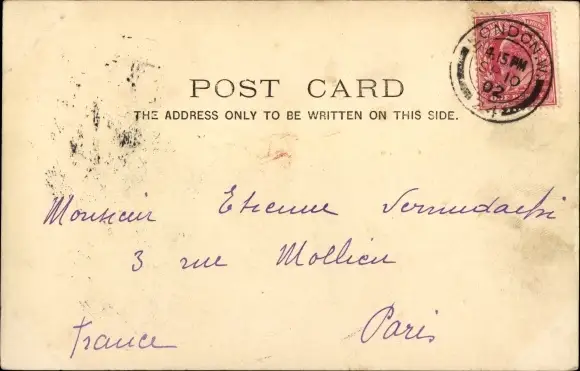 LONDON. W.
4.15 PM
10
02
POST CARD
THE ADDRESS ONLY TO BE WRITTEN ON THIS SIDE.
Monsieur Etienne
3 rue Mollien
France Paris